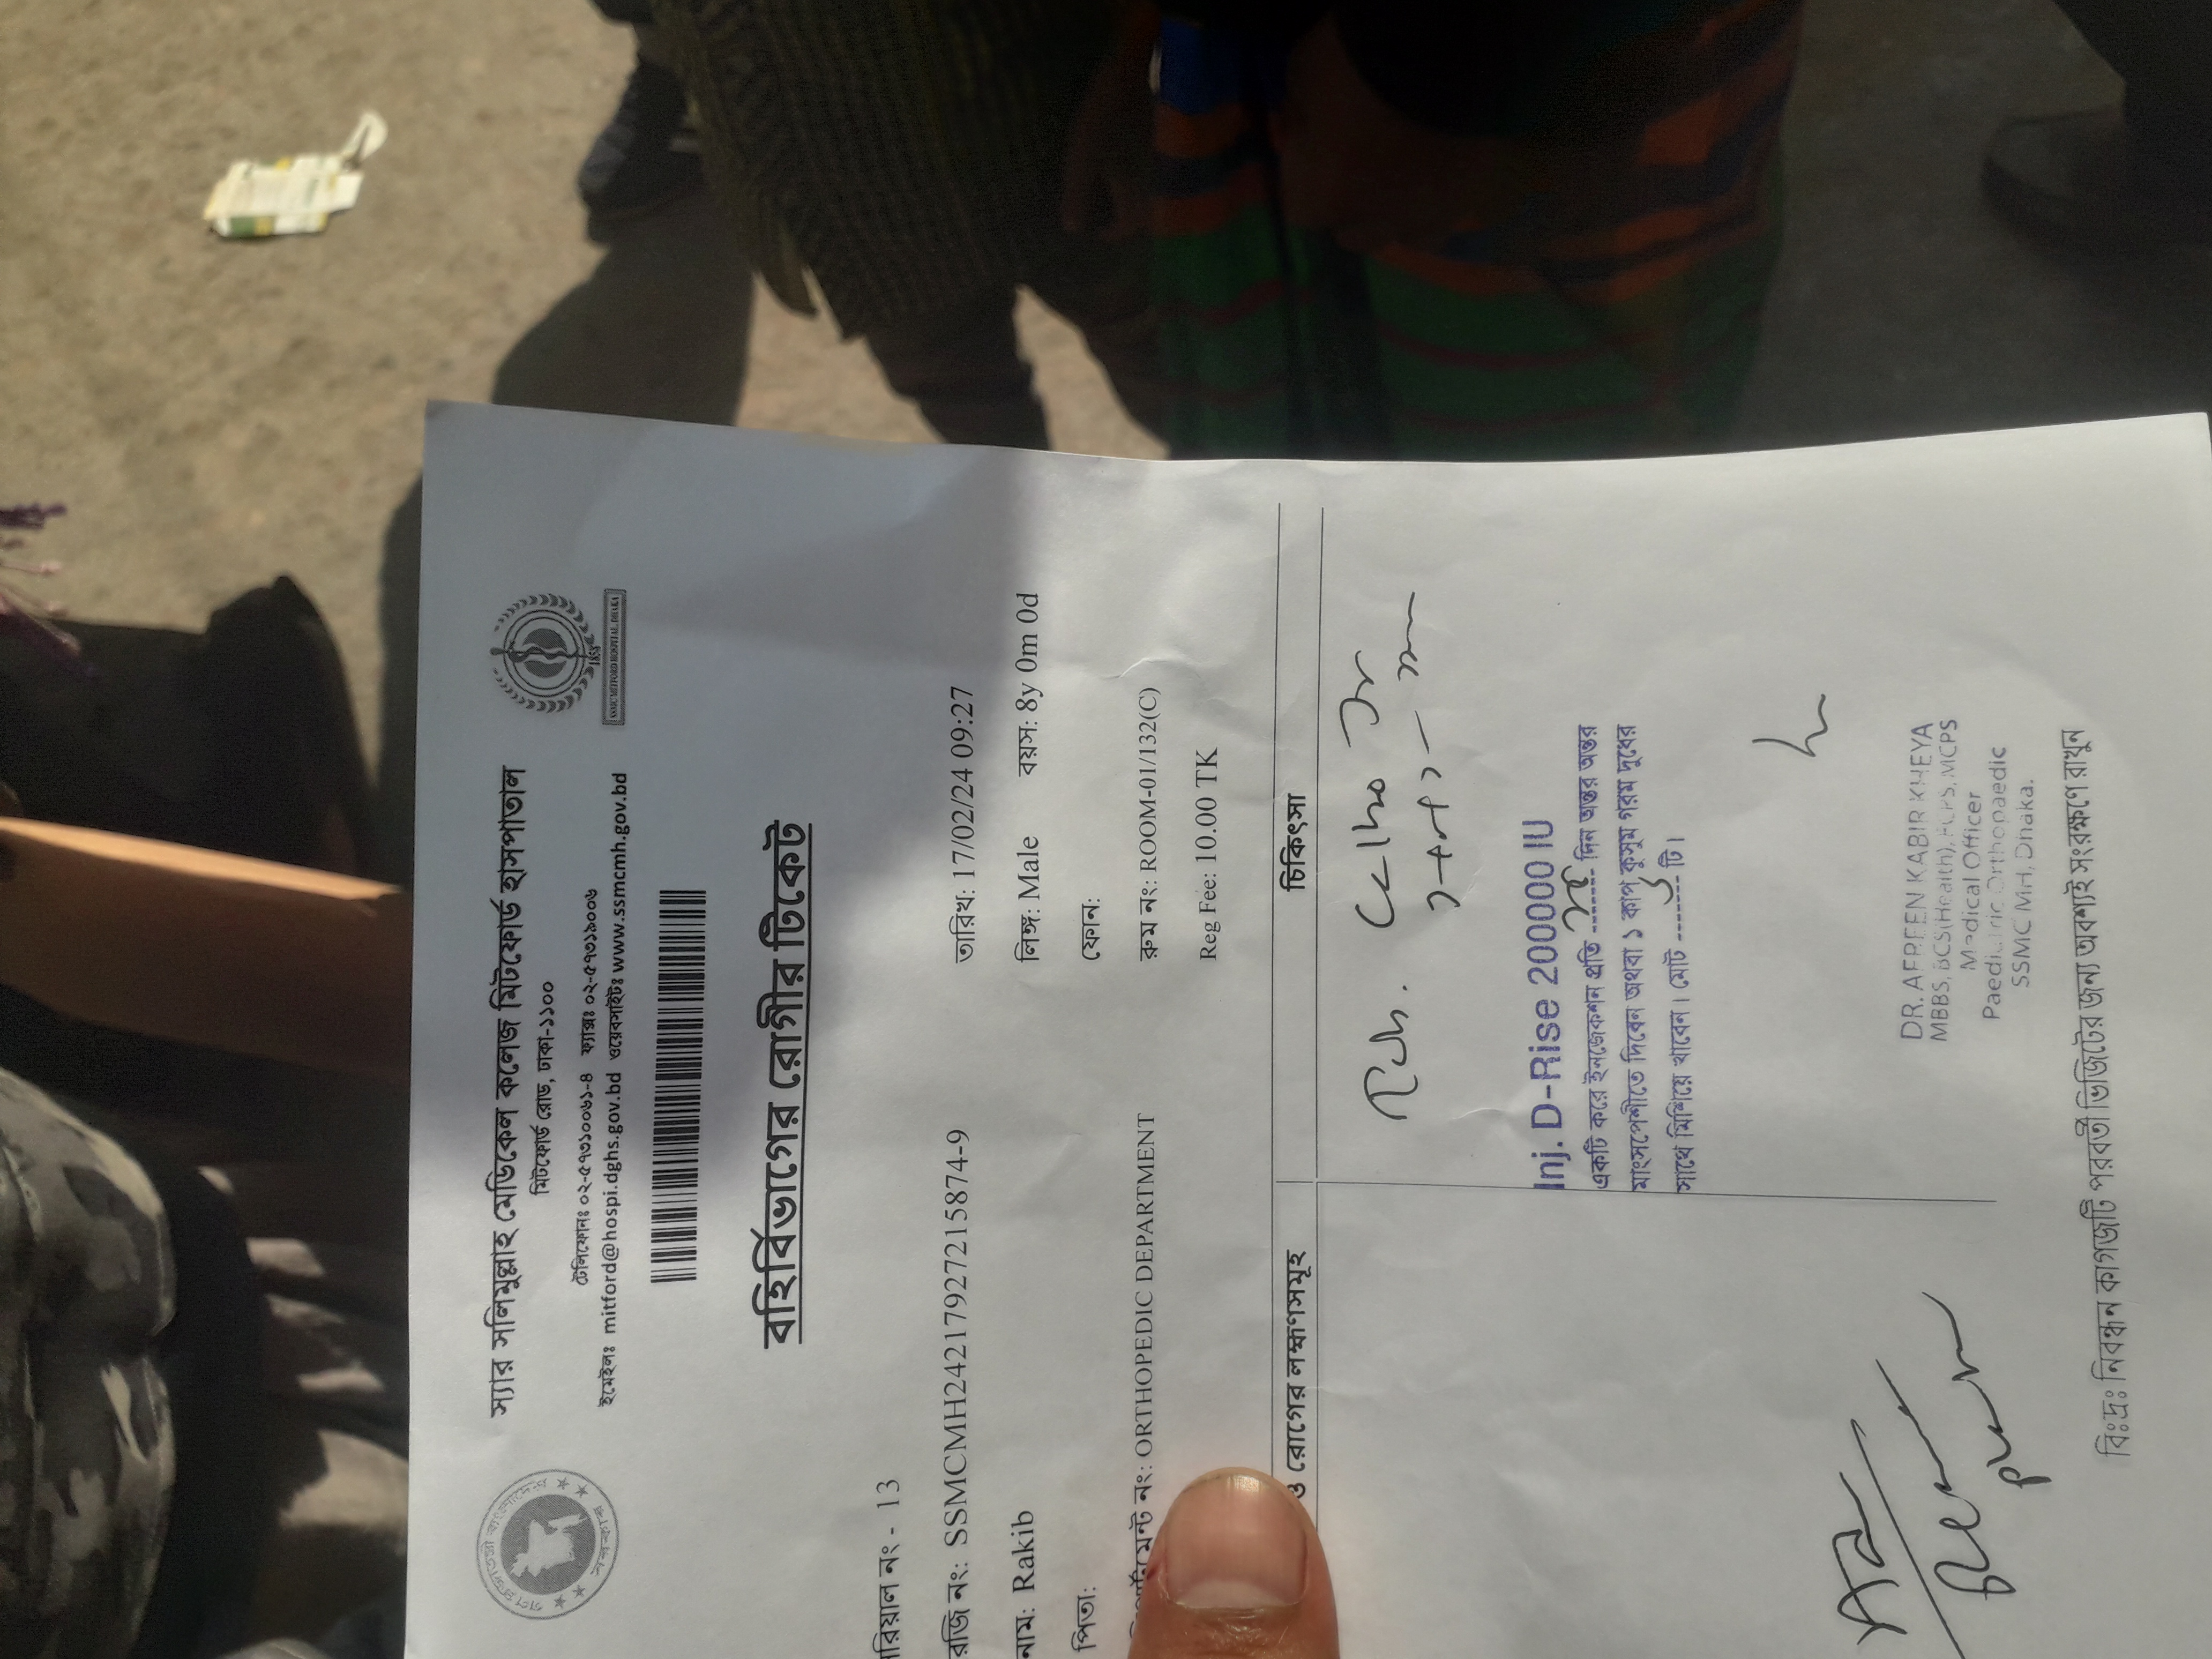 স্যার সলিমুল্লাহ মেডিকেল কলেজ মিটফোর্ড হাসপাতাল
মিটফোর্ড রোড, ঢাকা-১১০০
টেলিফোনঃ ০২-৫৭৩১০০৬১-৪ ফ্যাক্সঃ ০২-৫৭৩১৯০০৬
ইমেইলঃ mitford@hospi.dghs.gov.bd ওয়েবসাইটঃ www.ssmcmh.gov.bd
বহির্বিভাগের রোগীর টিকেট
রিয়াল নং - 13
রজি নং: SSMCMH2421792721​5874-9 তারিখ: 17/02/24 09:27
নাম: Rakib লিঙ্গ: Male বয়স: 8y 0m 0d
পিতা: ফোন:
নং: ORTHOPEDIC DEPARTMENT রুম নং: ROOM-01/132(C)
Reg Fee: 10.00 TK
ও রোগের লক্ষণসমূহ চিকিৎসা
১+০+১
Inj. D-Rise 200000 IU
একটি করে ইনজেকশন প্রতি ------- দিন অন্তর অন্তর
মাংসপেশীতে দিবেন অথবা ১ কাপ কুসুম গরম দুধের
সাথে মিশিয়ে খাবেন। মোট ------- টি।
DR. AFREEN KABIR KHEYA
MBBS, BCS(Health), MCPS
Medical Officer
Paediatric Orthopaedic
SSMC MH, Dhaka.
বিঃদ্রঃ নিবন্ধন কাগজটি পরবর্তী ভিজিটের জন্য অবশ্যই সংরক্ষণে রাখুন